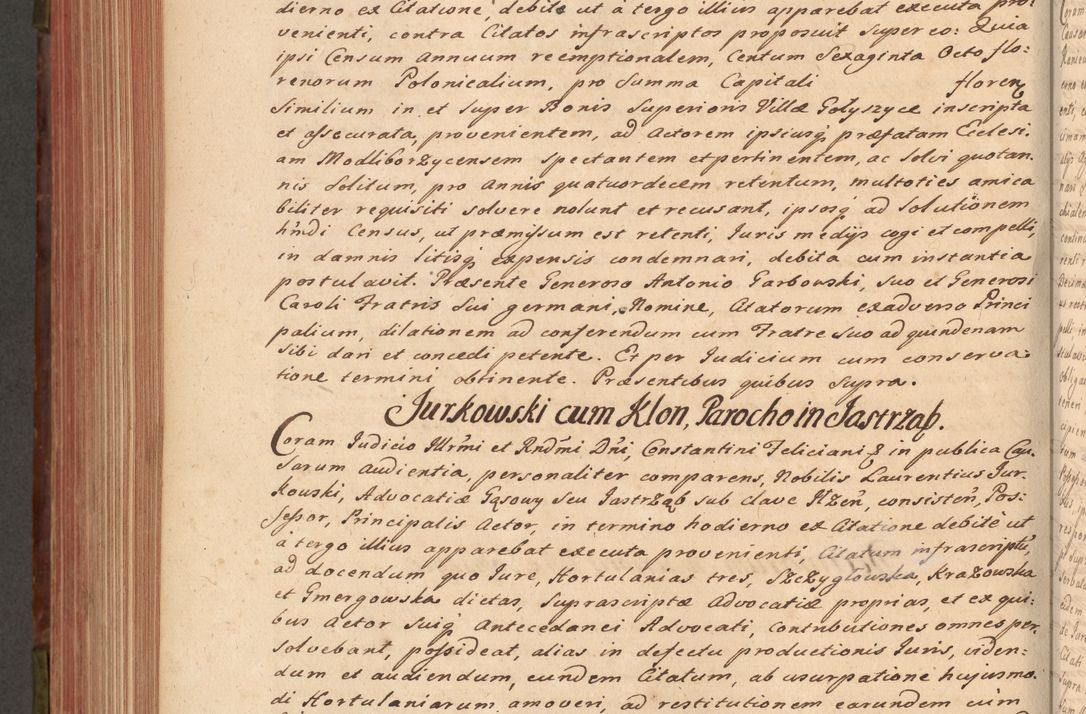 dierno ex Citatione, debite ut à tergo illius apparebat executa pro:
venienti, contra Citatos infrascriptos proposuit super eo: Quia
ipsi Censum Annuum reemptionalem, Centum Sexaginta Octo flo:
renorum Polonicalium, pro Summa Capitali floren
Similium in et super Bonis Superioris Villæ Gołyszyce inscripta
et assecurata, provenientem, ad Actorem ipsiusq́ præfatam Ecclesi:
am Modliborzycensem spectantem et pertinentem, ac solvi quotan:
nis Solitum, pro Annis quatuordecem retentum, multoties amica
biliter requisiti solvere nolunt et recusant, ipsosq́ ad Solutionem
hm̃di Census, ut præmissum est retenti, Juris medijs cogi et compelli,
in damnis litisq́ expensis condemnari, debita cum instantia
postulavit. Præsente Generoso Antonio Garbowski, suo et Generosi
Caroli Fratris Sui germani, Nomine, Citatorum exadverso Princi
palium, dilationem ad conferendum cum Fratre Suo ad quindenam
Sibi dari et concedi petente. Et per Judicium cum conserva:
tione termini obtinente. Præsentibus quibus Supra.
Jurkowski cum Klon, Parocho in Jastrząb.
Coram Judicio Illr̃mi et Rnd̃mi Dñi, Constantini Feliciani in publica Cau
sarum Audientia, personaliter comparens, Nobilis Laurentius Jur:
kowski, Advocatiæ Gąsowy seu Jastrząb sub clave Iłżeñ, consisteñ, Pos:
sessor, Principalis Actor, in termino hodierno ex Citatione debitè ut
à tergo illius apparebat executa provenienti, Citatum infrascriptũ,
ad docendum quo Jure, Hortulanias tres, Szczygłowska, Krazowska
et Gmergowska dictas, Suprascriptæ Advocatiæ proprias, et ex qui:
bus Actor Suiq́ Antecedanei Advocati, Contributiones omnes per:
solvebant, possideat, alias in defectu productionis Juris, viden:
dum et audiendum, eundem Citatum, ab usurpatione hujusmo:
di Hortulaniarum amoveri, ad restitutionem earundem cum